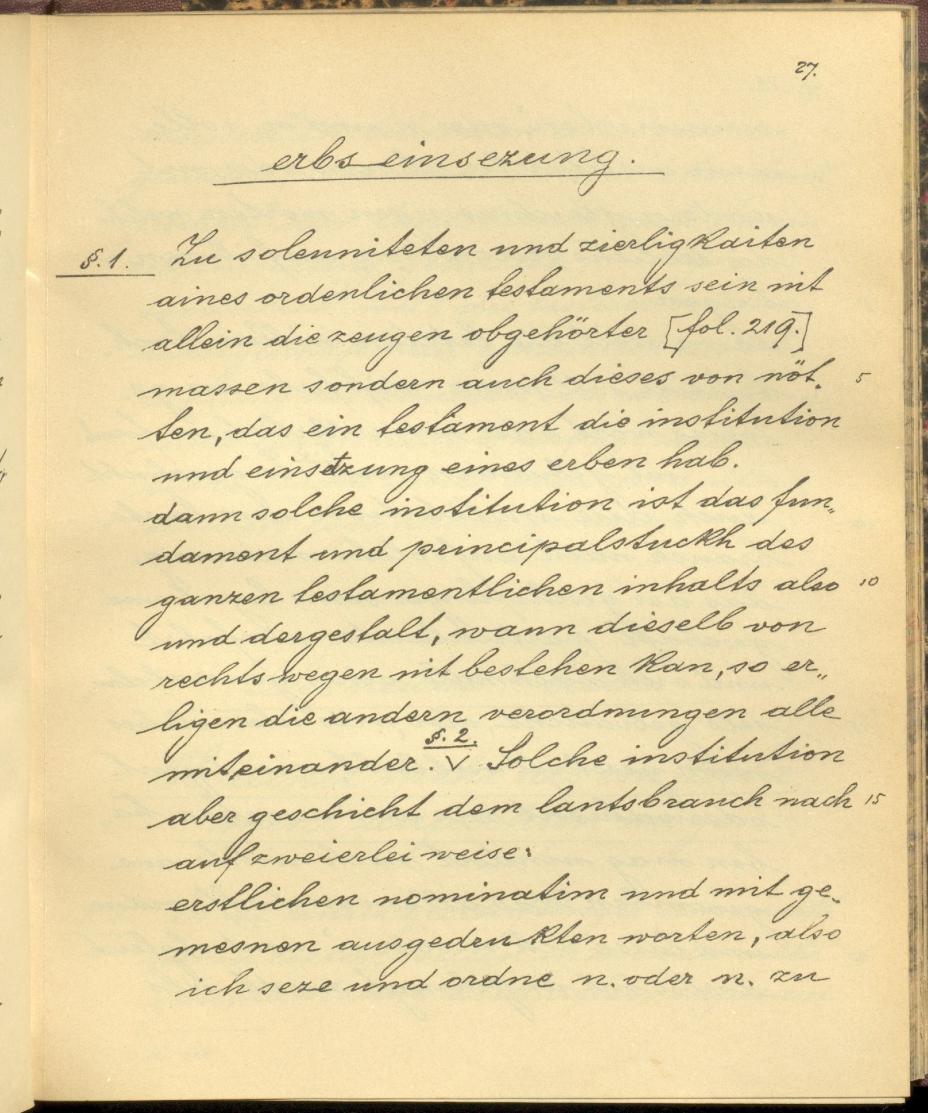 27.
erbs einsezung.
§. 1. Zu solenniteten und zierligkaiten
aines ordenlichen testaments sein nit
allein die zeugen obgehörter [fol. 219.]
massen sondern auch dieses von nöt-
5
ten, das ein testament die institution
und einsetzung eines erben hab.
dann solche institution ist das fun„
dament und principalstuckh des
ganzen testamentlichen inhalts also
10
und dergestalt, wann dieselb von
rechts wegen nit bestehen kan, so er„
ligen die andern verordnungen alle
§. 2.
miteinander. √ Solche institution
aber geschicht dem lantsbrauch nach
15
auf zweierlei weise:
erstlichen nominatim und mit ge-
mesnen ausgedrukten worten, also
ich seze und ordne n. oder n. zu